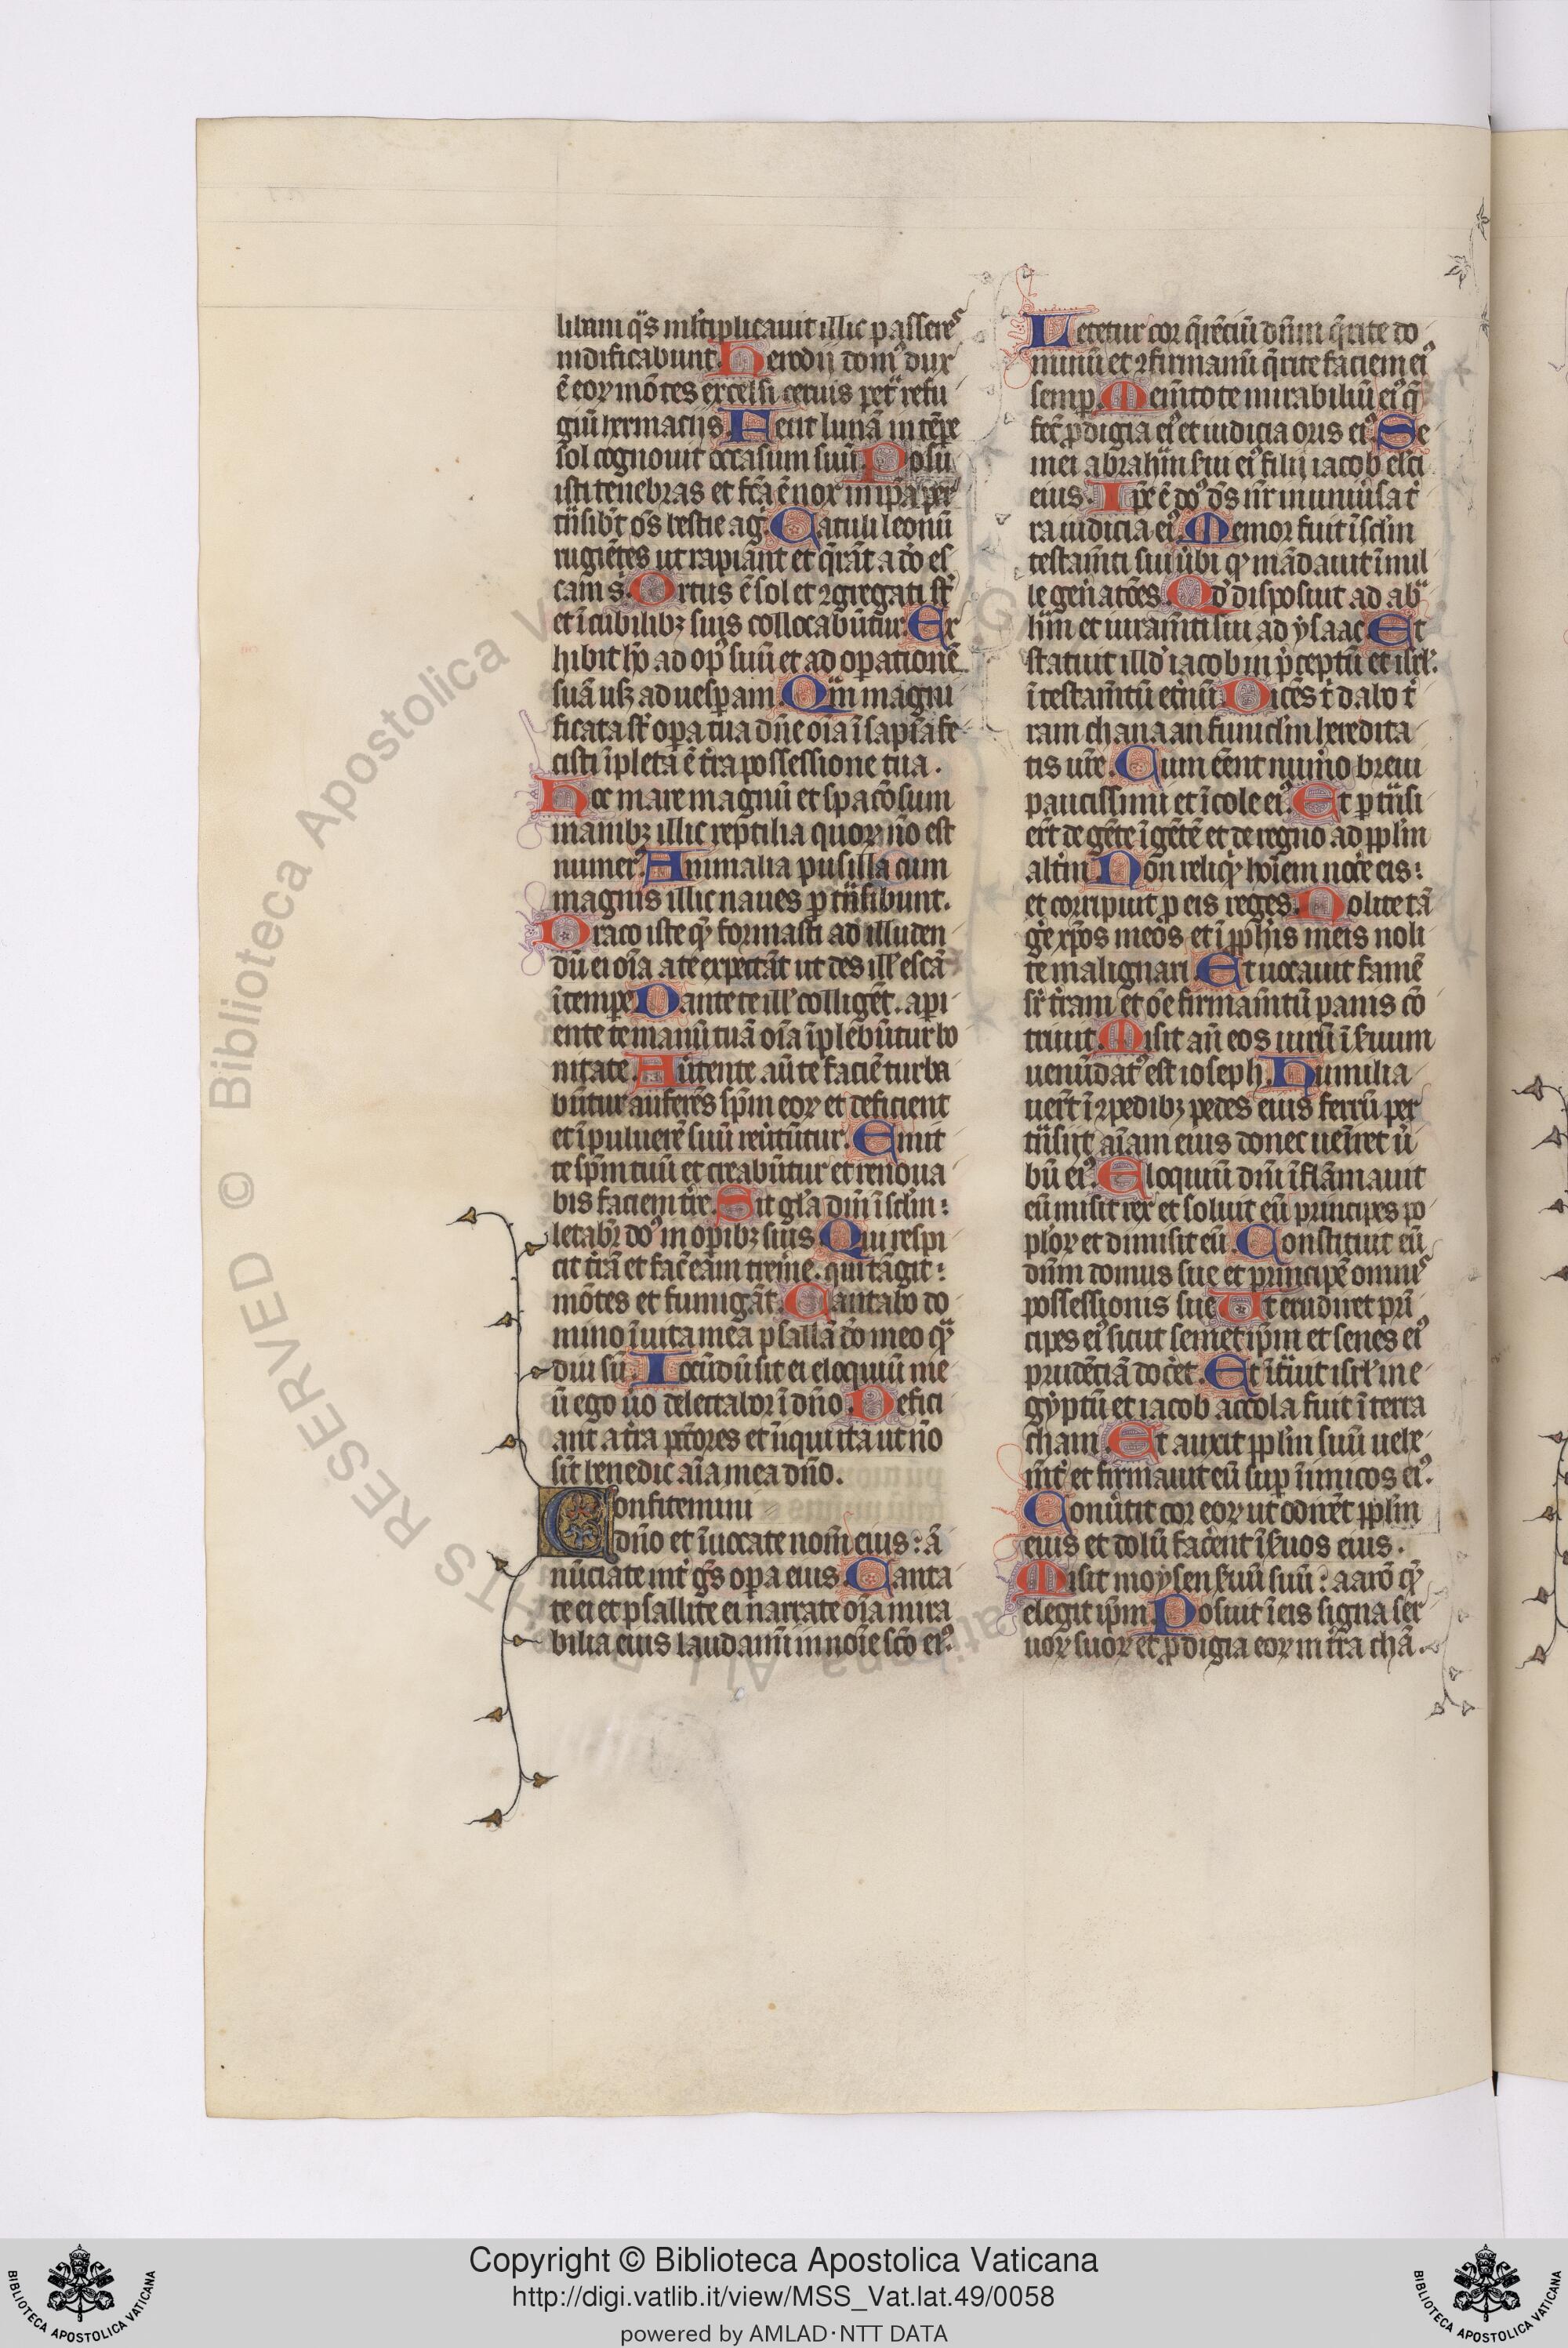 libani q̃s ml̃tiplicauit illic passeres
nidificabunt. Herodii dom᷒ dux
ẽ eoꝝ mõtes excelsi ceruis pet᷑ refu
giũ hermaciis. Fecit lunã in tẽpe
sol cognouit occasum suũ. Posu
isti tenebras et fcã ẽ nox in ip̃a per
tñsibũt oẽs bestie ag᷑. Catuli leonũ
rugiẽtes ut rapiant et q̃rãt a do es
cam s᷑. Ortus ẽ sol et ꝯgregati st̃
et ĩ cubilibꝫ suis collocabũtur. Ex
hibit hõ ad op᷒ suũ et ad operationẽ
suã usꝫ ad uesperam. Qm̃ magni
ficata st̃ opera tua dñe oĩa ĩ sapĩa fe
cisti ĩpleta ẽ tr̃a possessione tua.
Hoc mare magnũ et spacõsum
manibꝫ illic reptilia quoꝝ nõ est
numer᷒. Animalia pusilla cum
magnis illic naues ꝑtñsibunt.
Draco iste qẽ formasti ad illuden
dũ ei oĩa a te expectãt ut des ill᷑ escã
ĩ tempe. Dante te ill᷑ colligẽt. aperi
ente te manũ tuã oĩa ĩplebũtur bo
nitate. Auertente aũ te faciẽ turba
bũtur auferes sp̃m eoꝝ et deficient
et ĩ puluerẽ suũ reuertũtur. Emit
te sp̃m tuũ et creabũtur et renoua
bis faciem tr̃e. Sit gl̃a dñi ĩ sclm̃:
letabr̃ do᷒ in operibꝫ suis. Qui respi
cit tr̃ã et fac̃ eam tremẽ. qui tãgit:
mõtes et fumigãt. Cantabo do
mino ĩ uita mea psallã do meo qᷓ
diu sũ. Iocũdũ sit ei eloquiũ me
ũ ego u̾o delectabor ĩ dño. Defici
ant a tr̃a pctõres et ĩiqui ita ut nõ
sĩt benedic aĩa mea dño.
Confitemini
dño et ĩuocate nom̃ eius: ã
nũciate int᷑ gẽs opera eius. Canta
te ei et psallite ei narrate oĩa mira
bilia eius laudamĩ in noĩe scõ ei᷒.
Letetur cor q̃rẽciũ dñm q̃rite do
minũ et ꝯfirmamĩ q̃rite faciem ei᷒
semp. Memẽtote mirabiliũ ei᷒ q̃
fec̃ ꝓdigia ei᷒ et iudicia oris ei᷒. Se
men abrahãm s̾ui ei᷒ filii iacob elc̃i
eius. Ip̃e ẽ do᷒ ds̃ nr̃ in uniu̾sa t᷑
ra iudicia ei᷒. Memor fuit ĩ sclm̃
testam̃ti sui u̾bi qᷓ mãdauit ĩ mil
le gen̾atões. Qd̃ disposuit ad ab᷑
hãm et iuram̃ti sui ad ysaac. Et
statuit illd᷑ iacob in p̃ceptũ et isrl᷑:
ĩ testam̃tũ et̾nũ. Dicẽs t᷑ dabo t᷑
ram chanaan funiclm̃ heredita
tis ur̃e. Cum eẽnt num̾o breui
paucissimi et ĩcole ei᷒. Et ꝑtñsi
er̃t de gẽte ĩ gẽtẽ et de regno ad pplm̃
alt̾m. Non reliq̾t hoĩem nocẽ eis:
et corripuit ꝓ eis reges. Nolite tã
gẽ xp̃os meos et ĩ ppħis meis noli
te malignari. Et uocauit famẽ
sr᷑ tr̃am et oẽ firmam̃tũ panis cõ
triuit. Misit añ eos uirũ ĩ s̾uum
uenũdat᷒ est ioseph. Humilia
uer̃t ĩ ꝯpedibꝫ pedes eius ferrũ per
tñsijt aĩam eius donec uenĩret u̾
bũ ei᷒. Eloquiũ dñi ĩflãmauit
eũ misit rex et soluit eũ princeps po
p̃loꝝ et dimisit eũ. Constituit eũ
dñm domus sue et principẽ omnis
possessionis sue. Ut erudiret prĩ
cipes ei᷒ sicut semet ip̃m et senes ei᷒
prudẽciã doc̾et. Et ĩt᷑uit isrl᷑ in e
gyptũ et iacob accola fuit ĩ terra
cham. Et auxit pplm̃ suũ uehe
m̃t᷑ et firmauit eũ sup ĩimicos ei᷒.
Conu̾tit cor eoꝝ ut odirẽt pplm̃
eius et dolũ fac̾ent ĩ s̾uos eius.
Misit moysen s̾uũ suũ: aarõ qẽ
elegit ip̃m. Posuit ĩ eis signa ser
uoꝝ suoꝝ et ꝓdigia eoꝝ in tr̃a chã.
Copyright © Biblioteca Apostolica Vaticana
http://digi.vatlib.it/view/MSS_Vat.lat.49/0058
powered by AMLAD·NTT DATA
BIBLIOTECA APOSTOLICA VATICANA
BIBLIOTECA APOSTOLICA VATICANA